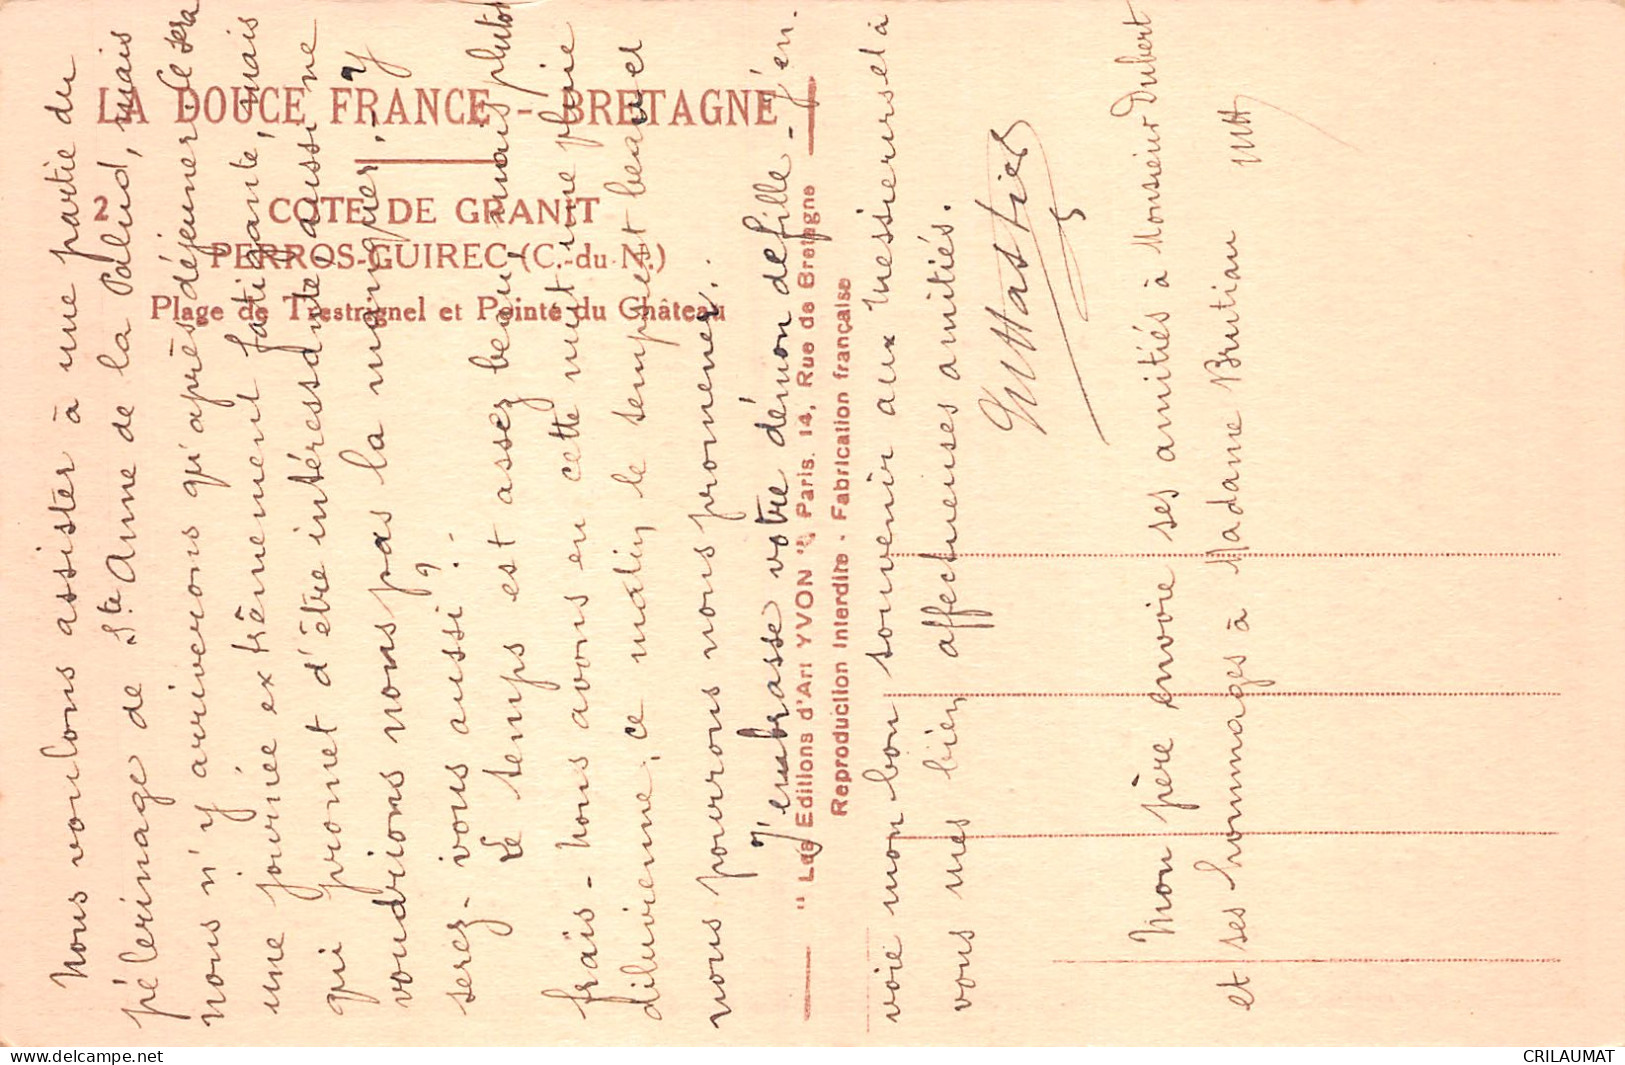 LA DOUCE FRANCE - BRETAGNE
2 COTE DE GRANIT
PERROS-GUIREC (C.-du-N.)
Plage de Trestrignel et Pointe du Château
" Les Editions d'Art YVON " Paris. 14, Rue de Bretagne
Reproduction Interdite - Fabrication française
Nous voulons assister à une partie du
pélerinage de Ste Anne de la Palud, mais
nous n'y arriverons qu'après déjeuner. Ce sera
une journée extrêmement fatigante, mais
qui promet d'être intéressante, aussi ne
voudrions nous pas la manquer. - Y
serez-vous aussi ? -
Le temps est assez beau, mais plutôt
frais - Nous avons eu cette nuit une pluie
diluvienne, ce matin, le temps est beau et
nous pourrons nous promener.
J'embrasse votre démon de fille - J'en.
voie mon bon souvenir aux messieurs et à
vous mes bien affectueuses amitiés.
Mon père envoie ses amitiés à Monsieur Dubert
et ses hommages à Madame Brutian
CRILAUMAT